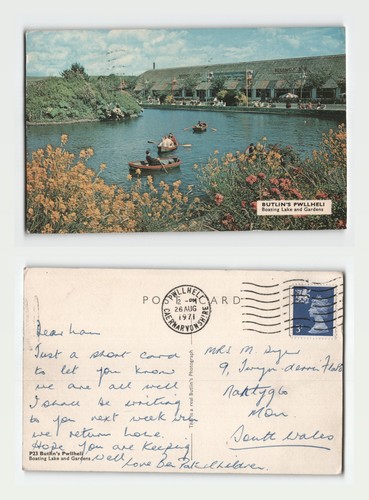 BUTLIN'S PWLLHELI
Boating Lake and Gardens
POST CARD
PWLLHELI
26 AUG
1971
CAERNARVONSHIRE
Dear Mam
Just a short card
to let you know
we are all well
I shall be writing
to you next week when
we return home.
Hope you are keeping
well
Love
Mrs M
9,
Mon.
South Wales
This is a real Butlin's Photograph
P23 Butlin's Pwllheli
Boating Lake and Gardens